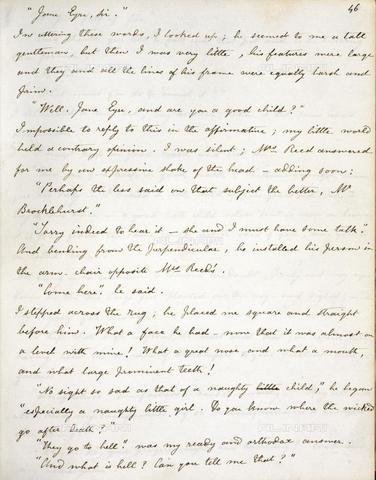 46
"Jane Eyre, sir."
In uttering these words, I looked up; he seemed to me a tall
gentleman, but then I was very little, his features were large
and they and all the lines of his frame were equally harsh and
prim.
"Well. Jane Eyre, and are you a good child?"
Impossible to reply to this in the affirmative; my little world
held a contrary opinion. I was silent; Mrs Reed answered
for me by an expressive shake of the head – adding soon:
"Perhaps the less said on that subject the better, Mr
Brocklehurst."
"Sorry indeed to hear it – she and I must have some talk."
And bending from the perpendicular, he installed his person in
the arm-chair opposite Mrs Reed's.
"Come here" he said.
I stepped across the rug; he placed me square and straight
before him. What a face he had – now that it was almost on
a level with mine! What a great nose and what a mouth,
and what large prominent teeth!
"No sight so sad as that of a naughty little child," he began
"especially a naughty little girl. Do you know where the wicked
go after death?"
"They go to hell" was my ready and orthodox answer.
"And what is hell? Can you tell me that?"
ALINARI